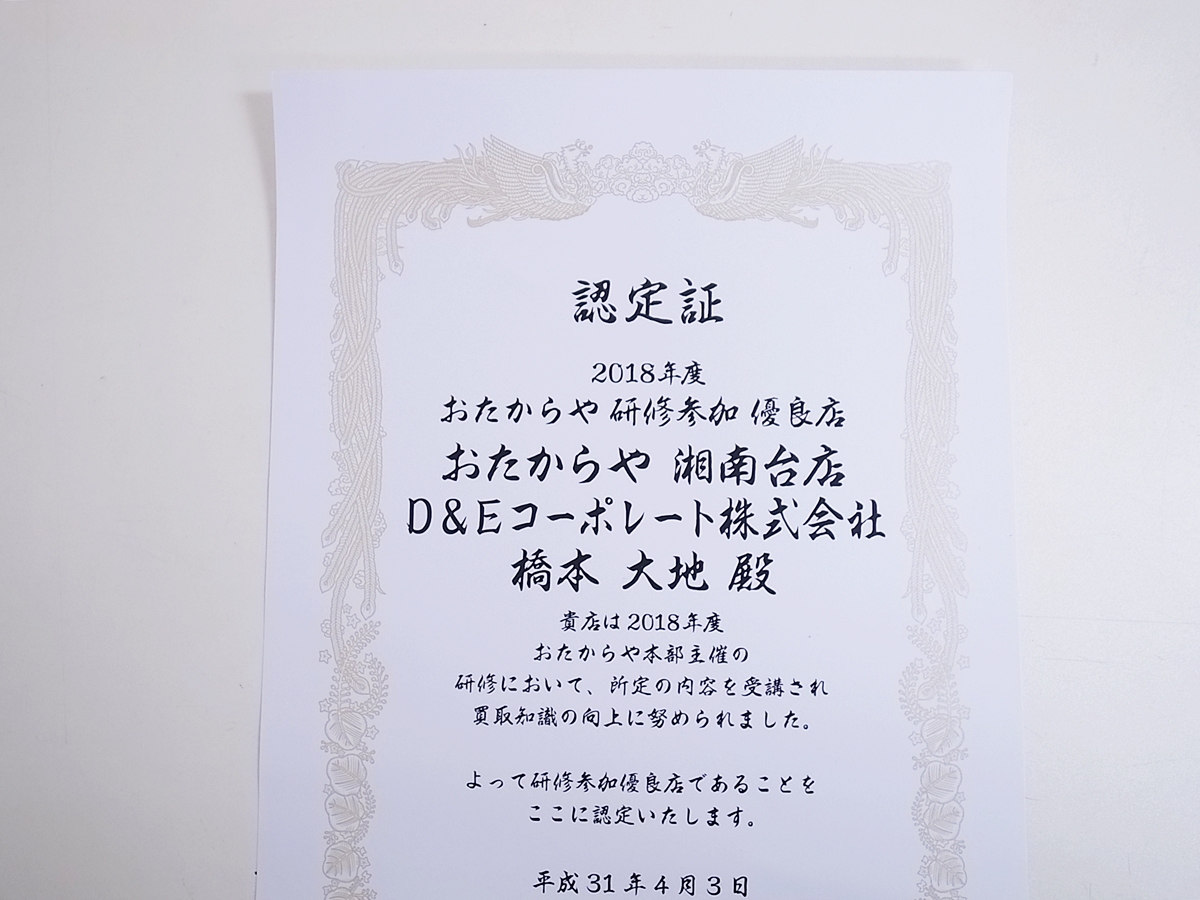 認定証
2018年度
おたからや 研修参加 優良店
おたからや 湘南台店
D&Eコーポレート株式会社
橋本 大地 殿
貴店は2018年度
おたからや本部主催の
研修において、所定の内容を受講され
買取知識の向上に努められました。
よって研修参加優良店であることを
ここに認定いたします。
平成31年4月3日